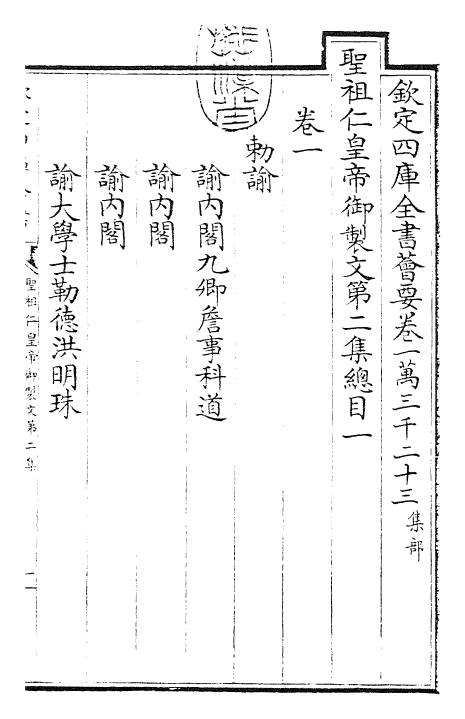 欽定四庫全書薈要卷一萬三千二十三 集部
聖祖仁皇帝御製文第二集總目一
卷一
勅諭
諭内閣九卿詹事科道
諭内閣
諭内閣
諭大學士勒德洪明珠
聖祖仁皇帝御製文第二集